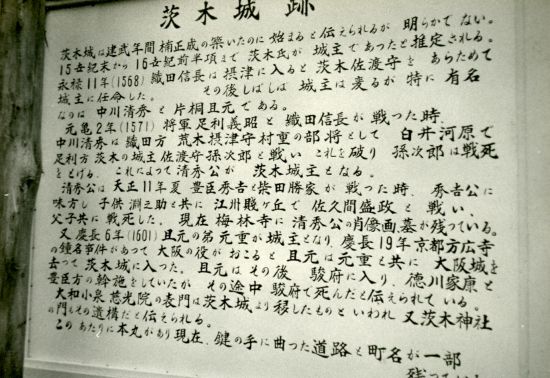 茨木城跡
茨木城は建武年間 楠正成の築いたのに 始まると伝えられるが 明らかでない。
15世紀末から 16世紀前半頃まで 茨木氏が 城主であったと推定される。
永禄11年(1568) 織田信長は 摂津に入ると 茨木佐渡守を あらためて
城主に任命した。 その後しばしば 城主は変るが 特に 有名
なのは 中川清秀と 片桐且元である。
元亀2年(1571) 将軍足利義昭と 織田信長が 戦った時、
中川清秀は 織田方 荒木摂津守村重の部将として 白井河原で
足利方 茨木の城主 佐渡守孫次郎と 戦い これを破り 孫次郎は戦死
をとげる。これによって 清秀公が 茨木城主となる。
清秀公は 天正11年夏 豊臣秀吉と柴田勝家が 戦った時、秀吉公に
味方し 子供 淵之助と共に 江州賤ヶ丘で 佐久間盛政と 戦い、
父子共に 戦死した。現在 梅林寺に 清秀公の肖像画墓が残っている。
又 慶長6年(1601) 且元の弟 元重が 城主となり、慶長19年京都方広寺
の鐘名事件があって 大阪の役が おこると 且元は 元重と共に 大阪城を
去って 茨木城に入った。且元は その後 駿府に入り、徳川家康と
豊臣方の斡施をしていたが その途中 駿府で死んだと伝えられている。
大和小泉 慈光院の表門は茨木城より移したものといわれ 又茨木神社
の門もその遺構だと伝えられる。
このあたりに本丸があり現在、鍵の手に曲った道路と町名が一部
残って